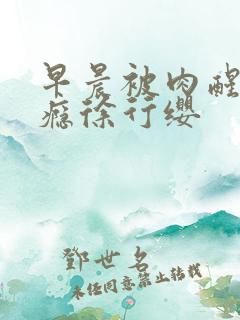 早晨被肉醒
瘾徐行缨
鄧世名
未经同意禁止转载